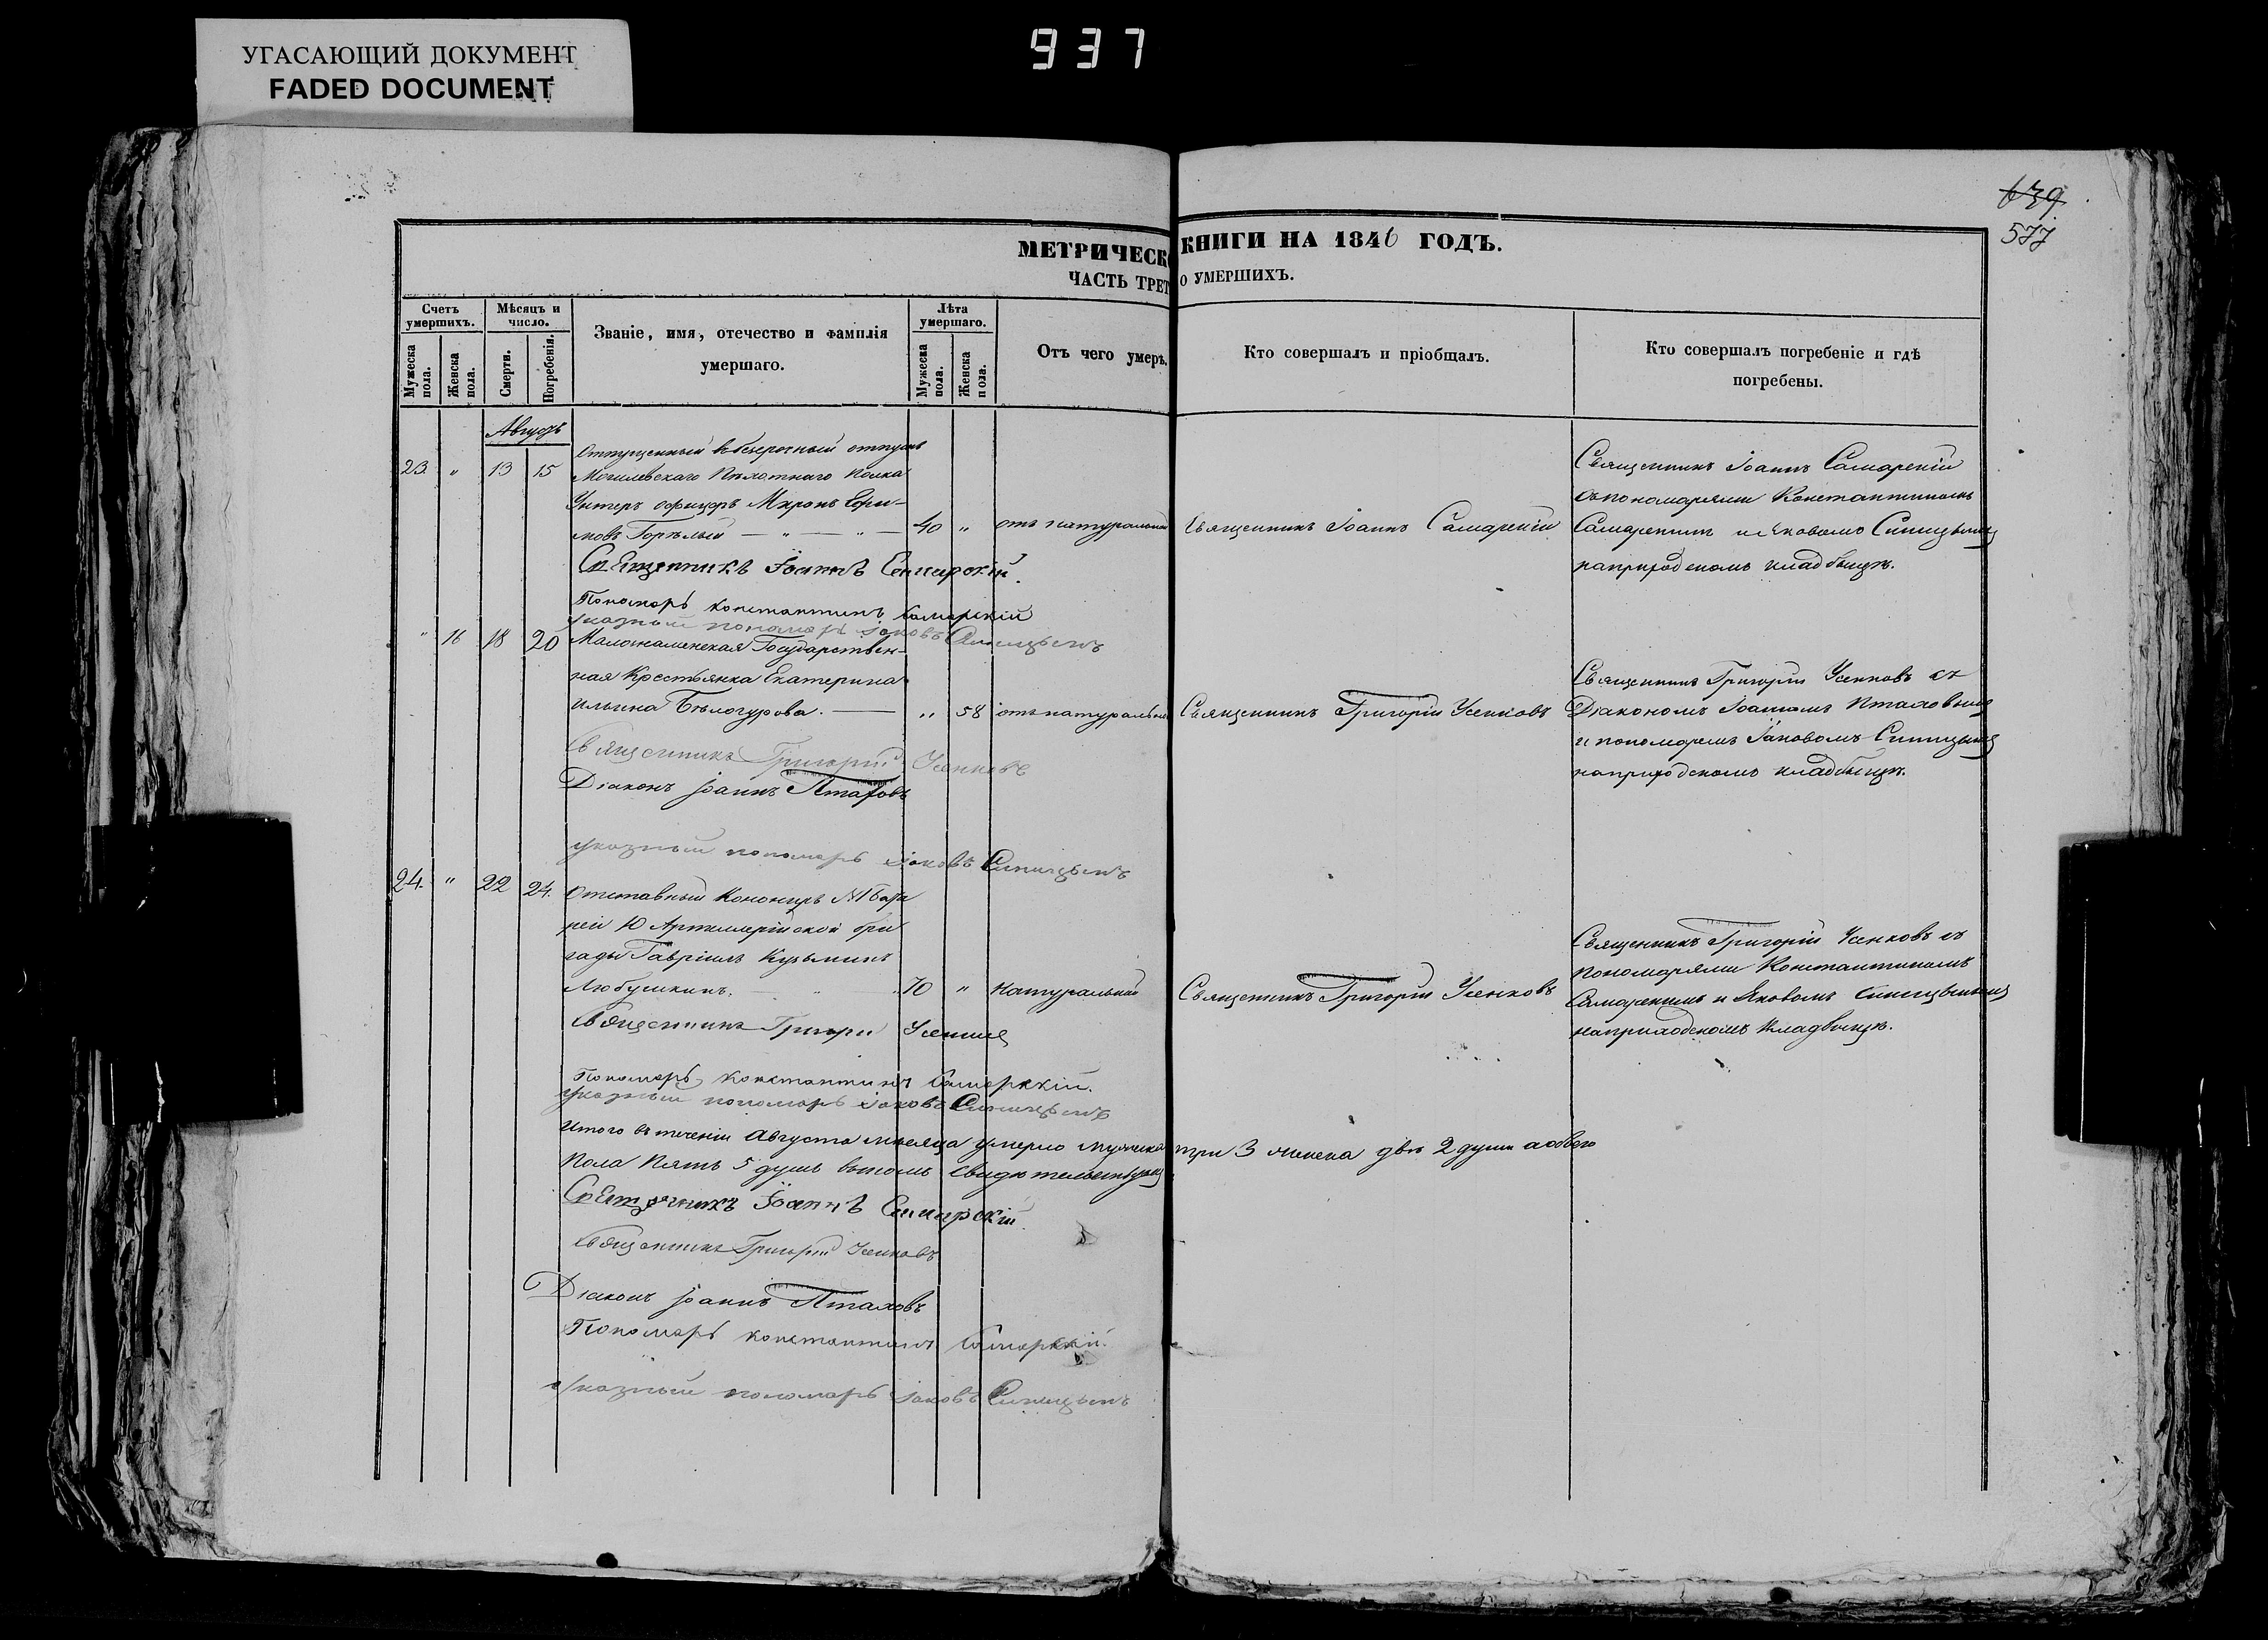 УГАСАЮЩИЙ ДОКУМЕНТ
FADED DOCUMENT
937
639
577
МЕТРИЧЕСК КНИГИ НА 1846 ГОДЪ.
ЧАСТЬ ТРЕТ О УМЕРШИХЪ.
Счетъ умершихъ.
Мужеска пола.
Женска пола.
Мѣсяцъ и число.
Смерти.
Погребенія.
Званіе, имя, отечество и фамилія
умершаго.
Лѣта умершаго.
Мужеска пола.
Женска пола.
Отъ чего умеръ.
Кто совершалъ и пріобщалъ.
Кто совершалъ погребеніе и гдѣ
погребены.
Августъ
23. " 13 15
Отпущенный въ безсрочный отпускъ
Могилевскаго Пѣхотнаго Полка
Унтеръ офицеръ Миронъ Ефи-
мовъ Горѣлый — " — " — 40 " отъ натуральной
Священникъ Іоаннъ Самарскій
Священникъ Іоаннъ Самарскій
съ пономарями Константиномъ
Самарскимъ и Яковомъ Синицынымъ
на приходскомъ кладбищѣ.
Священникъ Іоаннъ Самарскій.
Пономарь Константинъ Самарскій
указный пономарь Іаковъ Синицынъ
" 16 18 20
Малокаменская Государствен-
ная Крестьянка Екатерина
Ильина Бѣлогурова. — " 58 отъ натуральной
Священникъ Григорій Усенковъ
Священникъ Григорій Усенковъ съ
Діакономъ Іоанномъ Птаховымъ
и пономаремъ Іаковомъ Синицынымъ
на приходскомъ кладбищѣ.
Священникъ Григорій Усенковъ
Діаконъ Іоаннъ Птаховъ
указный пономарь Іаковъ Синицынъ
24. " 22 24.
Отставный Канониръ №1 Бата
реи 10 Артиллерійской бри
гады Гавріилъ Кузьминъ
Любушкинъ. 70 " натуральной
Священникъ Григорій Усенковъ
Священникъ Григорій Усенковъ съ
пономарями Константиномъ
Самарскимъ и Яковомъ Синицынымъ
на приходскомъ кладбищѣ.
Священникъ Григорій
Пономарь Константинъ Самарскій.
указный пономарь Іаковъ Синицынъ
Итого въ теченіи Августа мѣсяца умерло мужеска три 3 женска двѣ 2 души а обоего
Пола Пять 5 душъ въ томъ свидѣтельствуемъ
Священникъ Іоаннъ Самарскій.
Священникъ Григорій Усенковъ
Діаконъ Іоаннъ Птаховъ
Пономарь Константинъ Самарскій.
указный пономарь Іаковъ Синицынъ